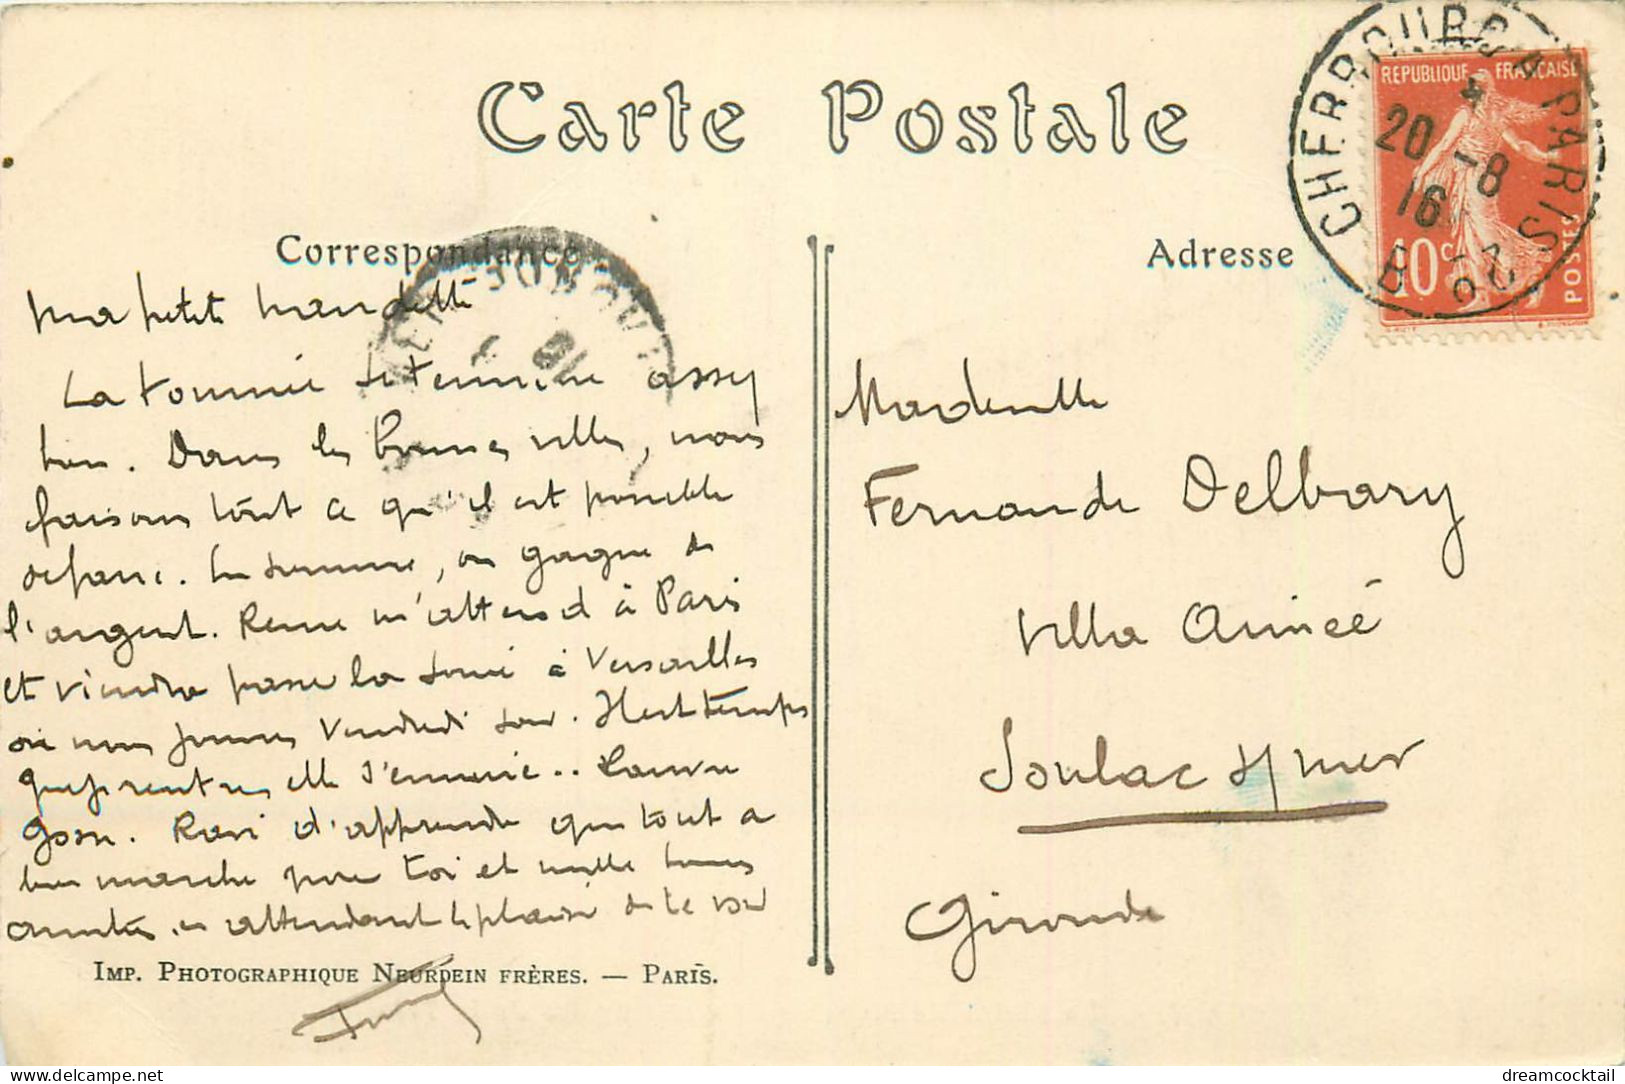 Carte Postale
Correspondance
Adresse
CHERBOURG A PARIS
20 -8
16
REPUBLIQUE FRANÇAISE
10c
POSTES
Ma petite
La tournée se termine assez
bien. Dans les bonnes villes, nous
faisons tout ce qu'il est possible
de faire. En somme, on gagne de
l'argent. Renée m'attend à Paris
et viendra passer la soirée à Versailles
où nous jouons Vendredi soir. Il est temps
elle s'ennuie.. Pauvre
gosse. Ravi d'apprendre que tout a
bien marché pour toi et mille bonnes
amitiés en attendant le plaisir de te voir
Mademoiselle
Fernande Delbary
Villa Aimée
Soulac s/ mer
Gironde
IMP. PHOTOGRAPHIQUE NEURDEIN FRÈRES. — PARIS.
delcampe.net
dreamcocktail